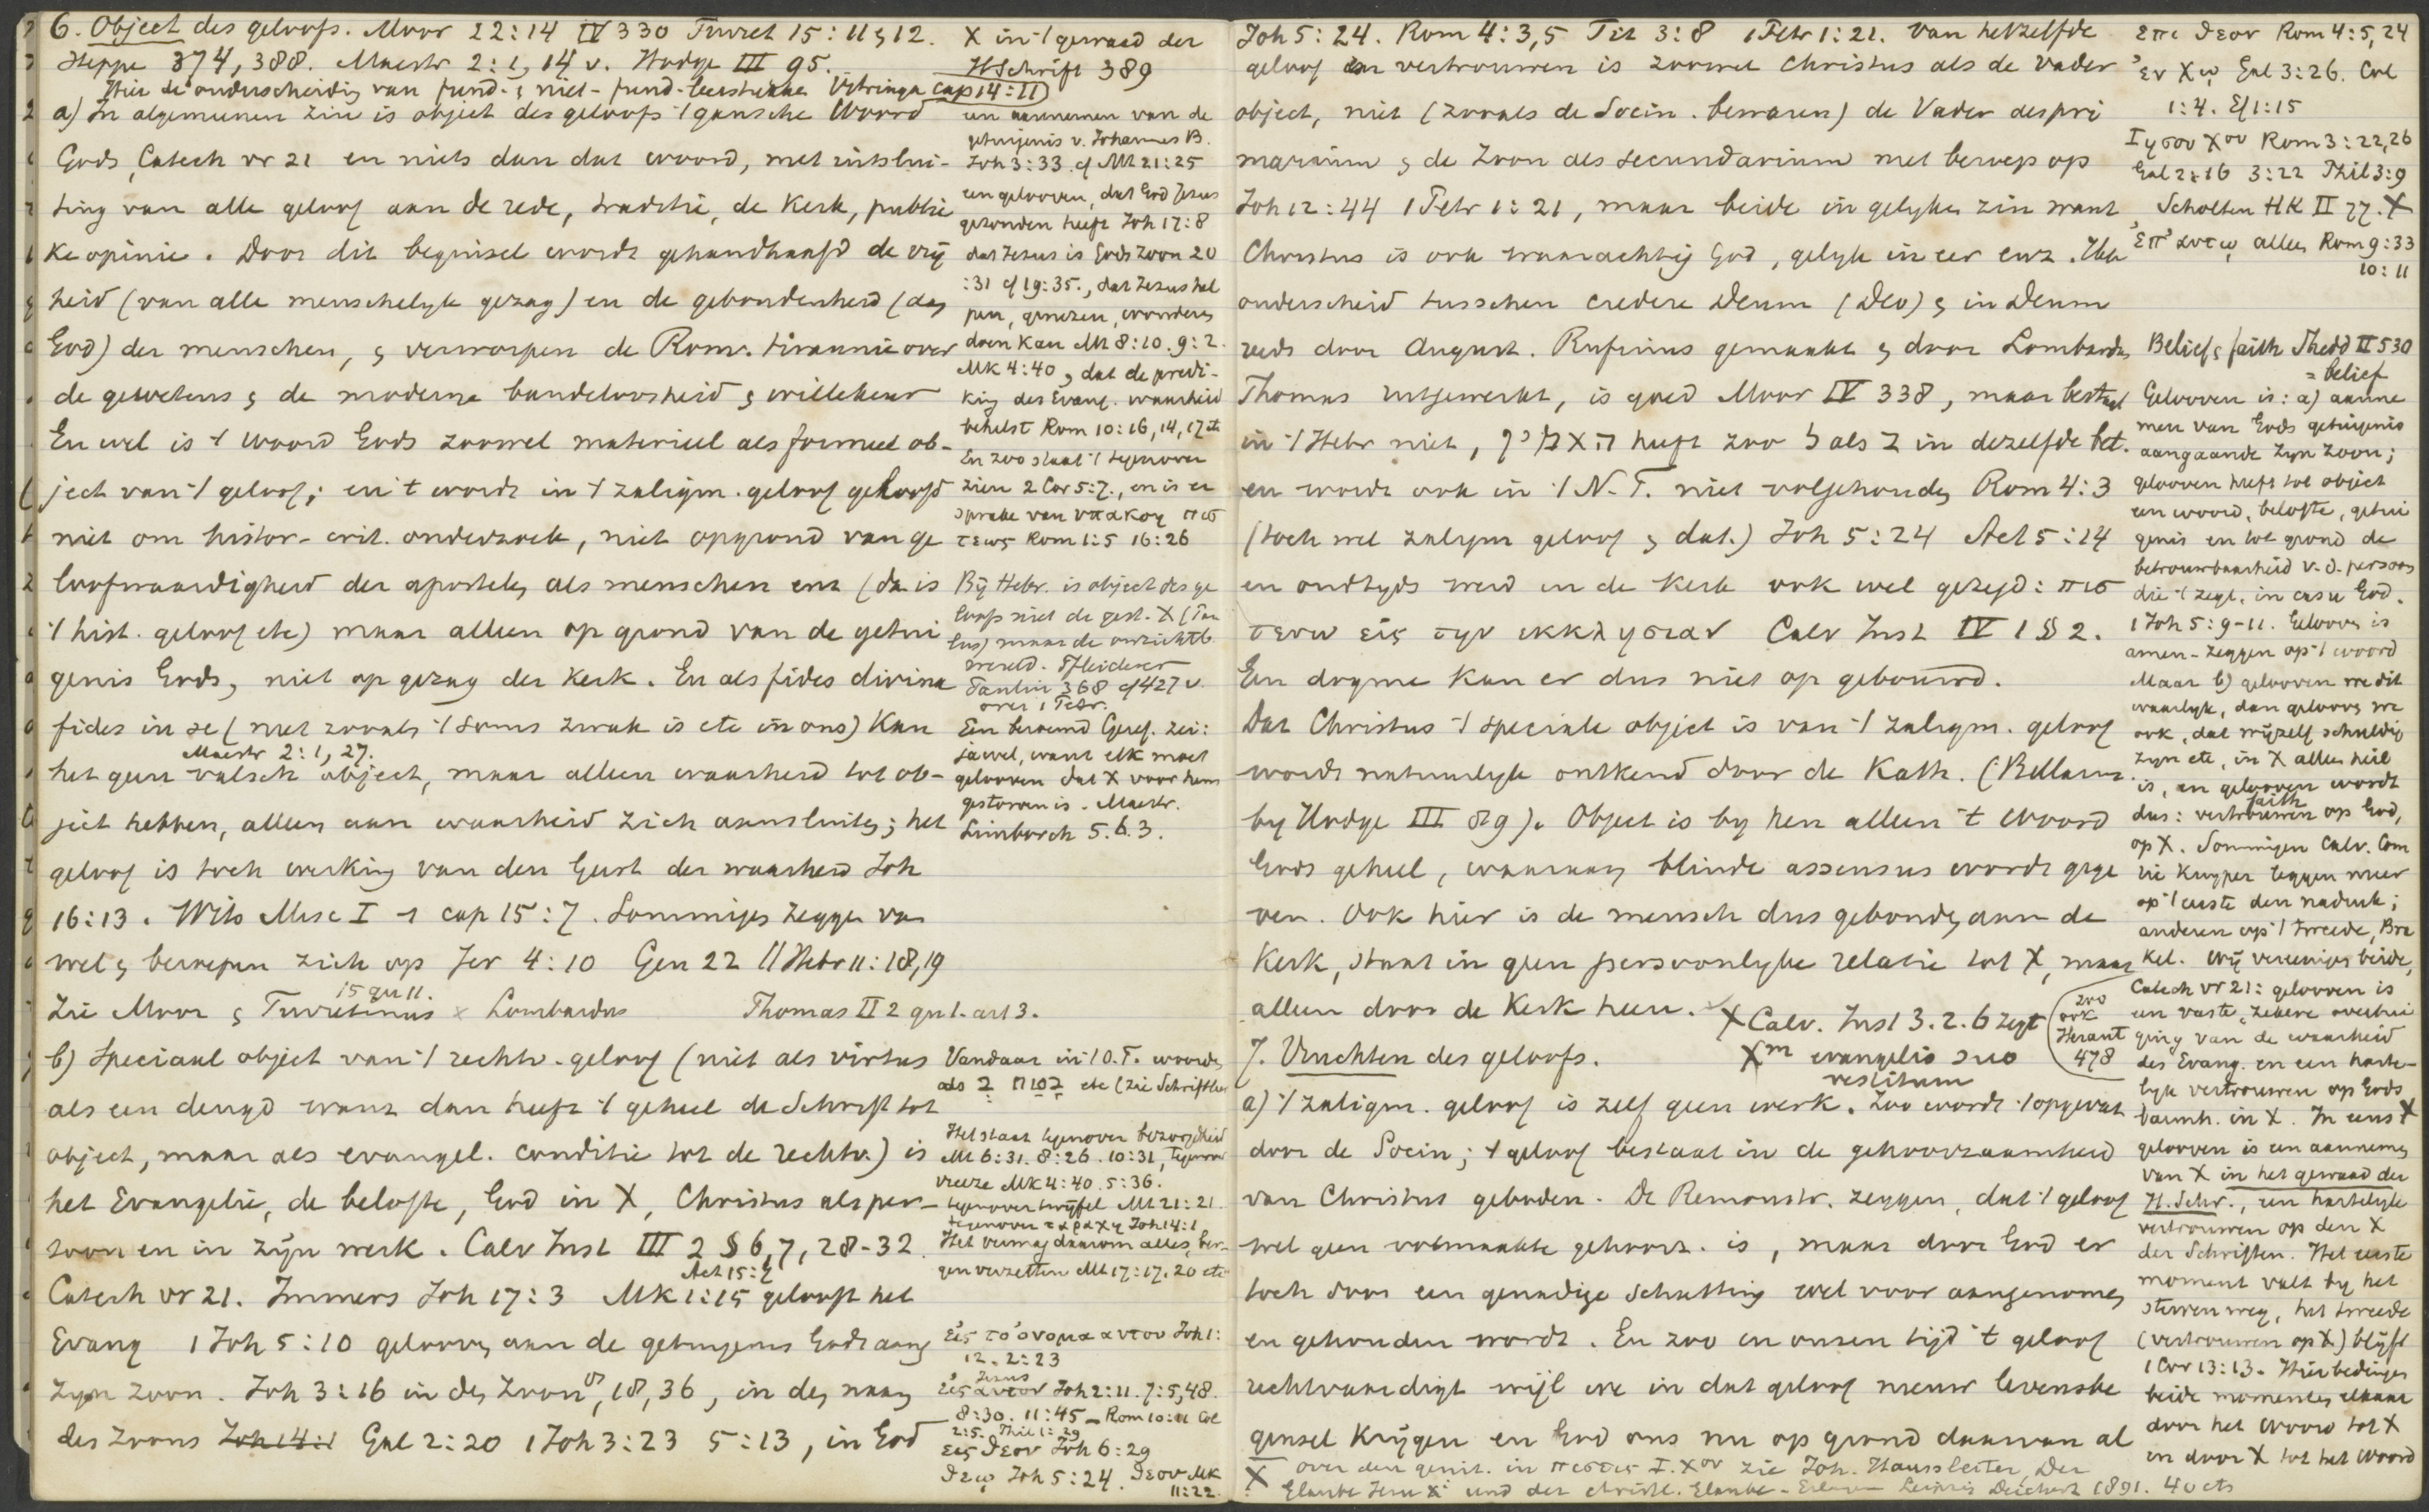 6. Object des geloofs. Moor 22:14 IV 330 Turret 15: 11 & 12.
Heppe 374, 388. Maestr 2:1, 14 v. Hodge III 95.
Hier de onderscheidig van fund. & niet-fund. leerstukken Vitringa cap 14:II
a) In algemeenen zin is object des geloofs 't gansche Woord
Gods, Catech vr 21 en niets dan dat woord, met uitslui-
ting van alle geloof aan de rede, traditie, de Kerk, publie
ke opinie. Door dit beginsel wordt gehandhaafd de vrij
heid (van alle menschelyk gezag) en de gebondenheid (aan
God) der menschen, & verworpen de Room. tirannie over
de gewetens & de moderne bandeloosheid & willekeur
En wel is 't Woord Gods zoowel materieel als formeel ob-
ject van 't geloof; en 't wordt in 't zaligm. geloof geloofd
niet om histor-crit. onderzoek, niet op grond van ge
loofwaardigheid der apostelen als menschen enz (da is
't hist. geloof etc) maar alleen op grond van de getui
genis Gods, niet op gezag der Kerk. En als fides divina
fides in se (niet zooals 't soms zwak is etc in ons) kan
Maestr 2:1, 27.
het geen valsch object, maar alleen waarheid tot ob-
ject hebben, alleen aan waarheid zich aansluiten; het
geloof is toch werking van den Geest der waarheid Joh
16:13. Wits Misc I cap 15:7. Sommigen zeggen van
wel & beroepen zich op Jer 4:10 Gen 22 || Hebr 11:18,19
15 qu 11.
Zie Moor & Turretinus x Lombardus Thomas II 2 qu 1. art 3.
b) Speciaal object van 't rechtv. geloof (niet als virtus
als een deugd want dan heeft 't geheel de Schrift tot
object, maar als evangel. conditie tot de rechtv.) is
het Evangelie, de belofte, God in X, Christus als per-
soon en in zijn werk. Calv Inst III 2 § 6, 7, 28-32
Act 15:7
Catech vr 21. Immers Joh 17:3 Mk 1:15 gelooft het
Evang 1 Joh 5:10 gelooven aan de getuigenis Gods aang
zyn Zoon. Joh 3:16 in den Zoon, 18, 36, in den naam
des Zoons Joh 14:1 Gal 2:20 1 Joh 3:23 5:13, in God
X in 't gewaad der
H Schrift 389
een aannemen van de
getuigenis v. Johannes B.
Joh 3:33. cf Mt 21:25
een gelooven, dat God Jezus
gezonden heeft Joh 17:8
dat Jezus is Gods Zoon 20
:31 cf 19:35., dat Jezus hel
pen, genezen, wonderen
doen kan Mt 8:10. 9:2.
Mk 4:40, dat de predi-
king des Evang. waarheid
behelst Rom 10:16, 14, 17 etc
En zoo staat 't tegenover
zien 2 Cor 5:7., en is er
sprake van υπακοη πισ
τεως Rom 1:5 16:26
Bij Hebr. is object des ge
loofs niet de gest. X (Pau
lus) maar de onzichtb.
wereld. Pfleiderer
Paulin 368 cf 427 v.
over 1 Petr.
Een beroemd Geref. zei:
jawel, want elk moet
gelooven dat X voor hem
gestorven is. Maestr.
Limborch 5.6.3.
Vandaar in 't O.T. woorden
als ב בטח etc (zie Schriftleer
Het staat tegenover bezorgdheid
Mt 6:31. 8:26. 10:31, tegenover
vreeze Mk 4:40. 5:36.
tegenover twijfel Mt 21:21
tegenover ταραχη Joh 14:1
Het vermag daarom alles, ber-
gen verzetten Mt 17:17. 20 etc
εἰς το ὀνομα αυτου Joh 1:
12. 2:23
Jezus
εἰς αυτον Joh 2:11. 7:5,48.
8:30. 11:45 - Rom 10:11 Col
2:5. Phil 1:29
εις θεον Joh 6:29
θεῳ Joh 5:24. θεου Mk
11:22.
Joh 5:24. Rom 4:3,5 Tit 3:8 1 Petr 1:21. Van hetzelfde
geloof en vertrouwen is zoowel Christus als de vader
object, niet (zooals de Socin. beweren) de Vader des pri
marium & de Zoon als secundarium met beroep op
Joh 12:44 1 Petr 1:21, maar beide in gelyken zin want
Christus is ook waarachtig God, gelyk in eer enz. Het
onderscheid tusschen credere Deum (Deo) & in Deum
reeds door August. Rufinus gemaakt & door Lombardus
Thomas uitgewerkt, is goed Moor IV 338, maar bestaat
in 't Hebr niet, האמין heeft zoo ל als ב in dezelfde bet.
en wordt ook in 't N.T. niet volgehouden Rom 4:3
(toch wel zaligm geloof & dat.) Joh 5:24 Act 5:14
en oudtyds werd in de Kerk ook wel gezegd: πισ
τευω εἰς την εκκλησιαν Calv Inst IV 1 § 2.
Een dogme kan er dus niet op gebouwd.
Dat Christus 't speciale object is van 't zaligm. geloof
wordt natuurlyk ontkend door de Kath. (Bellarm.
by Hodge III 89). Object is by hen alleen 't Woord
Gods geheel, waaraan blinde assensus wordt gege
ven. Ook hier is de mensch dus gebonden aan de
Kerk, staat in geen persoonlyke relatie tot X, maar
alleen door de Kerk heen.
X Calv. Inst 3.2.6 zegt
Xm evangelio suo
vestitum
zoo
ook
Heraut
478
7. Vruchten des geloofs.
a) 't zaligm. geloof is zelf geen werk. Zoo wordt 't opgevat
door de Socin; 't geloof bestaat in de gehoorzaamheid
van Christus geboden. De Remonstr. zeggen, dat 't geloof
wel geen volmaakte gehoorz. is, maar door God er
toch door een genadige schatting wel voor aangenomen
en gehouden wordt. En zoo in onzen tijd 't geloof
rechtvaardigt wijl we in dat geloof nieuw levensbe
ginsel krijgen en God ons nu op grond daarvan al
X over den genit. in πιστις Ι. Χου zie Joh. Haussleiter, Der
Glaube Jesu Xi und der christl. Glaube - Erlangen Leipzig Deichert 1891. 40 cts
επι θεον Rom 4:5, 24
ἐν Χῳ Gal 3:26. Col
1:4. Ef 1:15
Ιησου Χου Rom 3:22,26
Gal 2:16 3:22 Phil 3:9
Scholten HK II 77. X
ἐπ' αυτῳ alleen Rom 9:33
10:11
Belief & faith Shedd II 530
= belief
Gelooven is: a) aanne
men van Gods getuigenis
aangaande zyn Zoon;
gelooven heeft tot object
een woord, belofte, getui
genis en tot grond de
betrouwbaarheid v. d. persoon
die 't zegt, in casu God.
1 Joh 5:9-11. Gelooven is
amen-zeggen op 't woord
Maar b) gelooven we dit
waarlyk, dan gelooven we
ook, dat wijzelf schuldig
zyn etc, in X alle heil
is, en gelooven wordt
faith
dus: vertrouwen op God,
op X. Sommigen Calv. Com
rie Kuyper leggen meer
op 't eerste den nadruk;
anderen op 't tweede, Bra
kel. Wij vereenigen beide,
Catech vr 21: gelooven is
een vaste, zekere overtui
ging van de waarheid
des Evang. en een harte-
lyk vertrouwen op Gods
barmh. in X. In eens X
gelooven is een aannemen
van X in het gewaad der
H. Schr., een hartelyk
vertrouwen op den X
der Schriften. Het eerste
moment valt by het
sterven weg, het tweede
(vertrouwen op X) blijft
1 Cor 13:13. Hier bedingen
beide momenten elkaar
door het Woord tot X
en door X tot het Woord